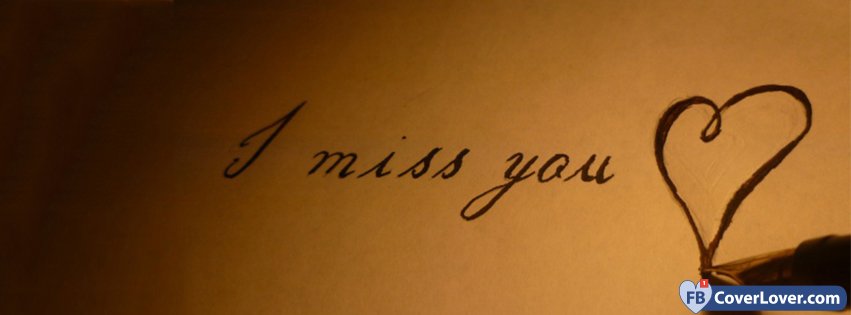 I miss you
FB 1 CoverLover.com